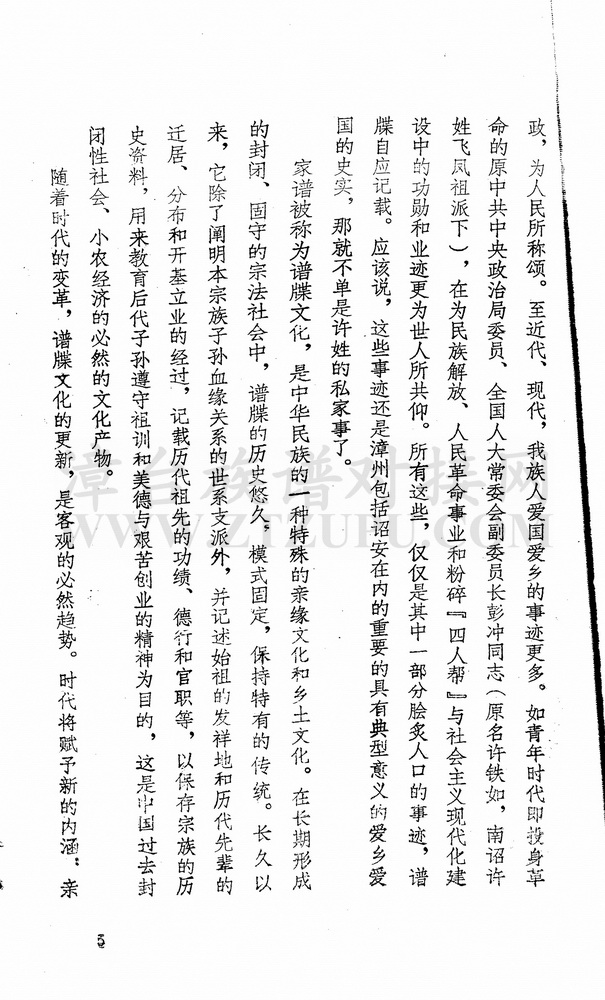 政，为人民所称颂。至近代、现代，我族人爱国爱乡的事迹更多。如青年时代即投身革
命的原中共中央政治局委员、全国人大常委会副委员长彭冲同志（原名许铁如，南诏许
姓飞凤祖派下），在为民族解放、人民革命事业和粉碎『四人帮』与社会主义现代化建
设中的功勋和业迹更为世人所共仰。所有这些，仅仅是其中一部分脍炙人口的事迹，谱
牒自应记载。应该说，这些事迹还是漳州包括诏安在内的重要的具有典型意义的爱乡爱
国的史实，那就不单是许姓的私家事了。
家谱被称为谱牒文化，是中华民族的一种特殊的亲缘文化和乡土文化。在长期形成
的封闭、固守的宗法社会中，谱牒的历史悠久，模式固定，保持特有的传统。长久以
来，它除了阐明本宗族子孙血缘关系的世系支派外，并记述始祖的发祥地和历代先辈的
迁居、分布和开基立业的经过，记载历代祖先的功绩、德行和官职等，以保存宗族的历
史资料，用来教育后代子孙遵守祖训和美德与艰苦创业的精神为目的，这是中国过去封
闭性社会、小农经济的必然的文化产物。
随着时代的变革，谱牒文化的更新，是客观的必然趋势。时代将赋予新的内涵；亲
5
漳台族谱对接网
WWW.ZTZUPU.COM